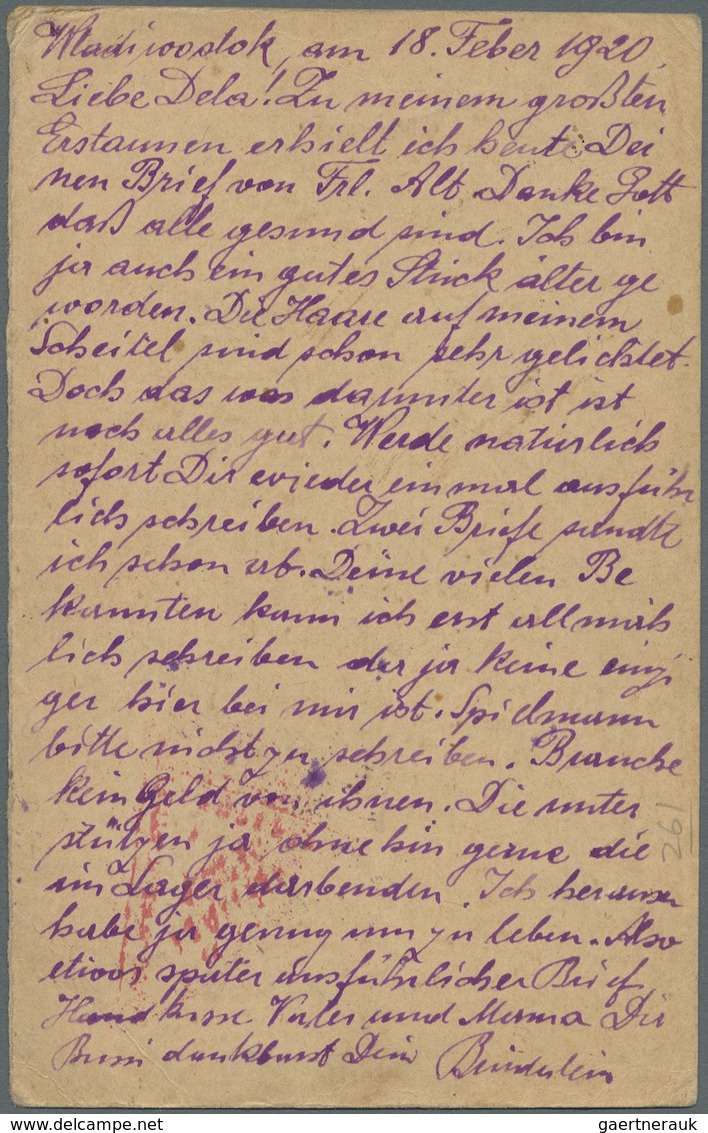 Wladiwostok, am 18. Feber 1920.
Liebe Dela! Zu meinem großten
Erstaunen erhielt ich heute Dei
nen Brief von Frl. Alt. Danke Gott
daß alle gesund sind. Ich bin
ja auch ein gutes Stück älter ge
worden. Die Haare auf meinem
Scheitel sind schon sehr gelichtet.
Doch das was darunter ist ist
noch alles gut. Werde natürlich
sofort Dir wieder einmal ausführ
lich schreiben. Zwei Briefe sandte
ich schon ab. Deine vielen Be
kannten kann ich erst allmäh
lich schreiben da ja keine eini
ger hier bei mir ist. Spielmann
bitte nicht zu schreiben. Brauche
kein Geld von ihnen. Die unter
stützen ja ohnehin gerne die
im Lager darbenden. Ich heraussen
habe ja genug um zu leben. Also
etwas später ausführlicher Brief.
Handküsse Vater und Mama Dir
Bussi dankbarst Dein Brüderlein
261
gaertnerauk